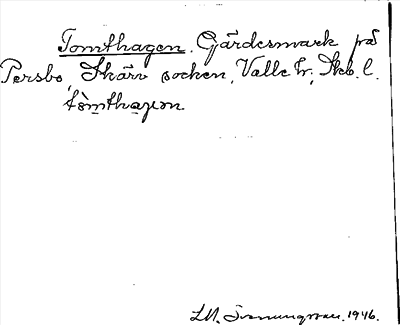 Tomthagen. Gärdesmark på
Persbo, Skärv socken, Valle hr, Skb. l.
tòmthagen
1946.